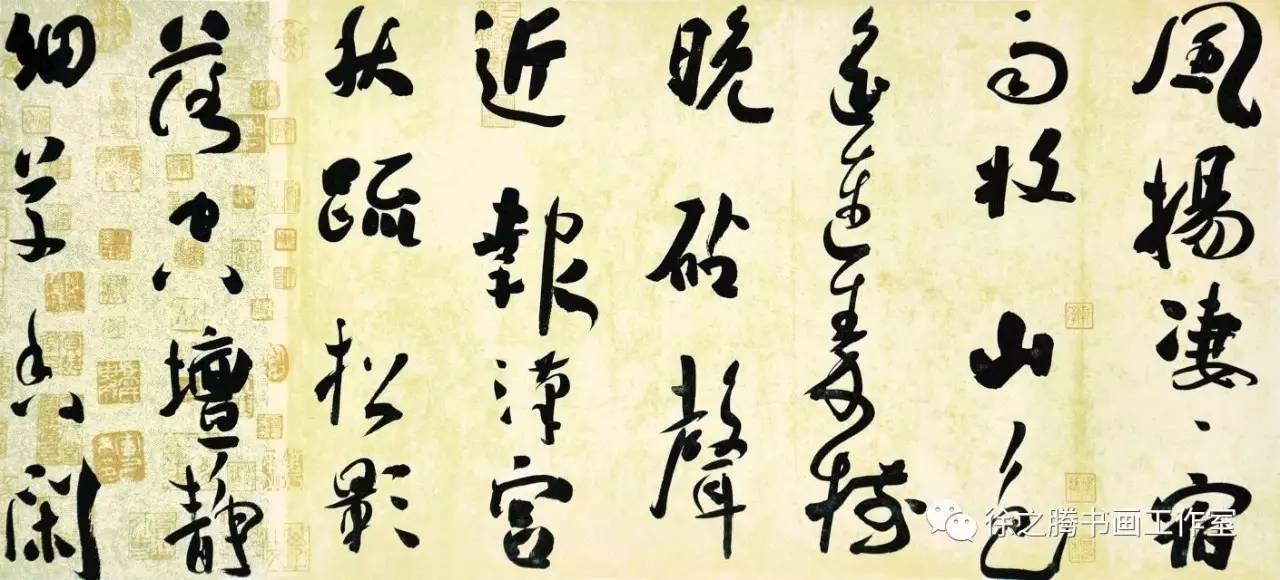 風揚凄〻宿
雨收山色
遙連秦樹
晚砧聲
近報漢宮
秋疏松影
落空壇靜
細草香閑
徐之腾书画工作室